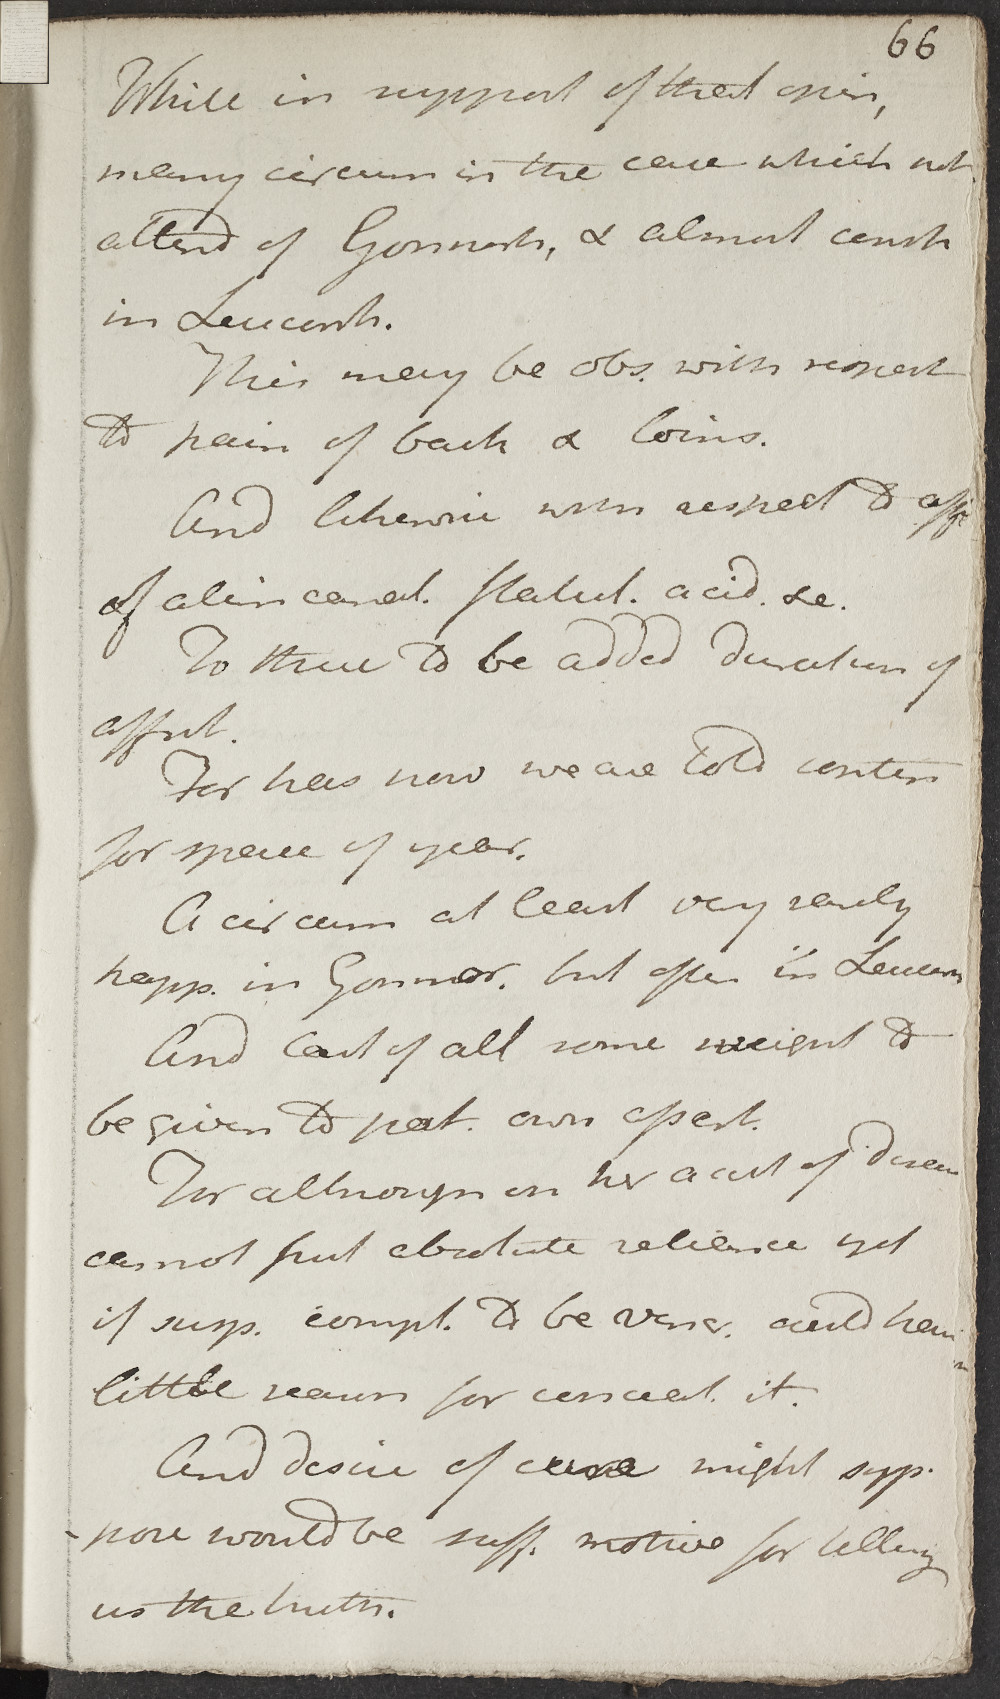 66
While in support of that opin,
many circum in the case which not
attend of Gonnorh, & almost consta
in Leucorrh.
This may be obs. with respect
to pain of back & loins.
And likewise with respect to aff
of alim canal. flatul. acid. &c.
To these to be added duration of
affect.
For has now we are told contin
for space of year.
A circum at least very rarely
happ. in Gonnor. but often in Leucorr
And last of all some weight to
be given to pat. own assert.
For although on her acct of disease
cannot put absolute reliance yet
if susp. compl. to be vener. could have
little reason for conceal. it.
And desire of cure might supp.
pose would be suff. motive for telling
us the truth.